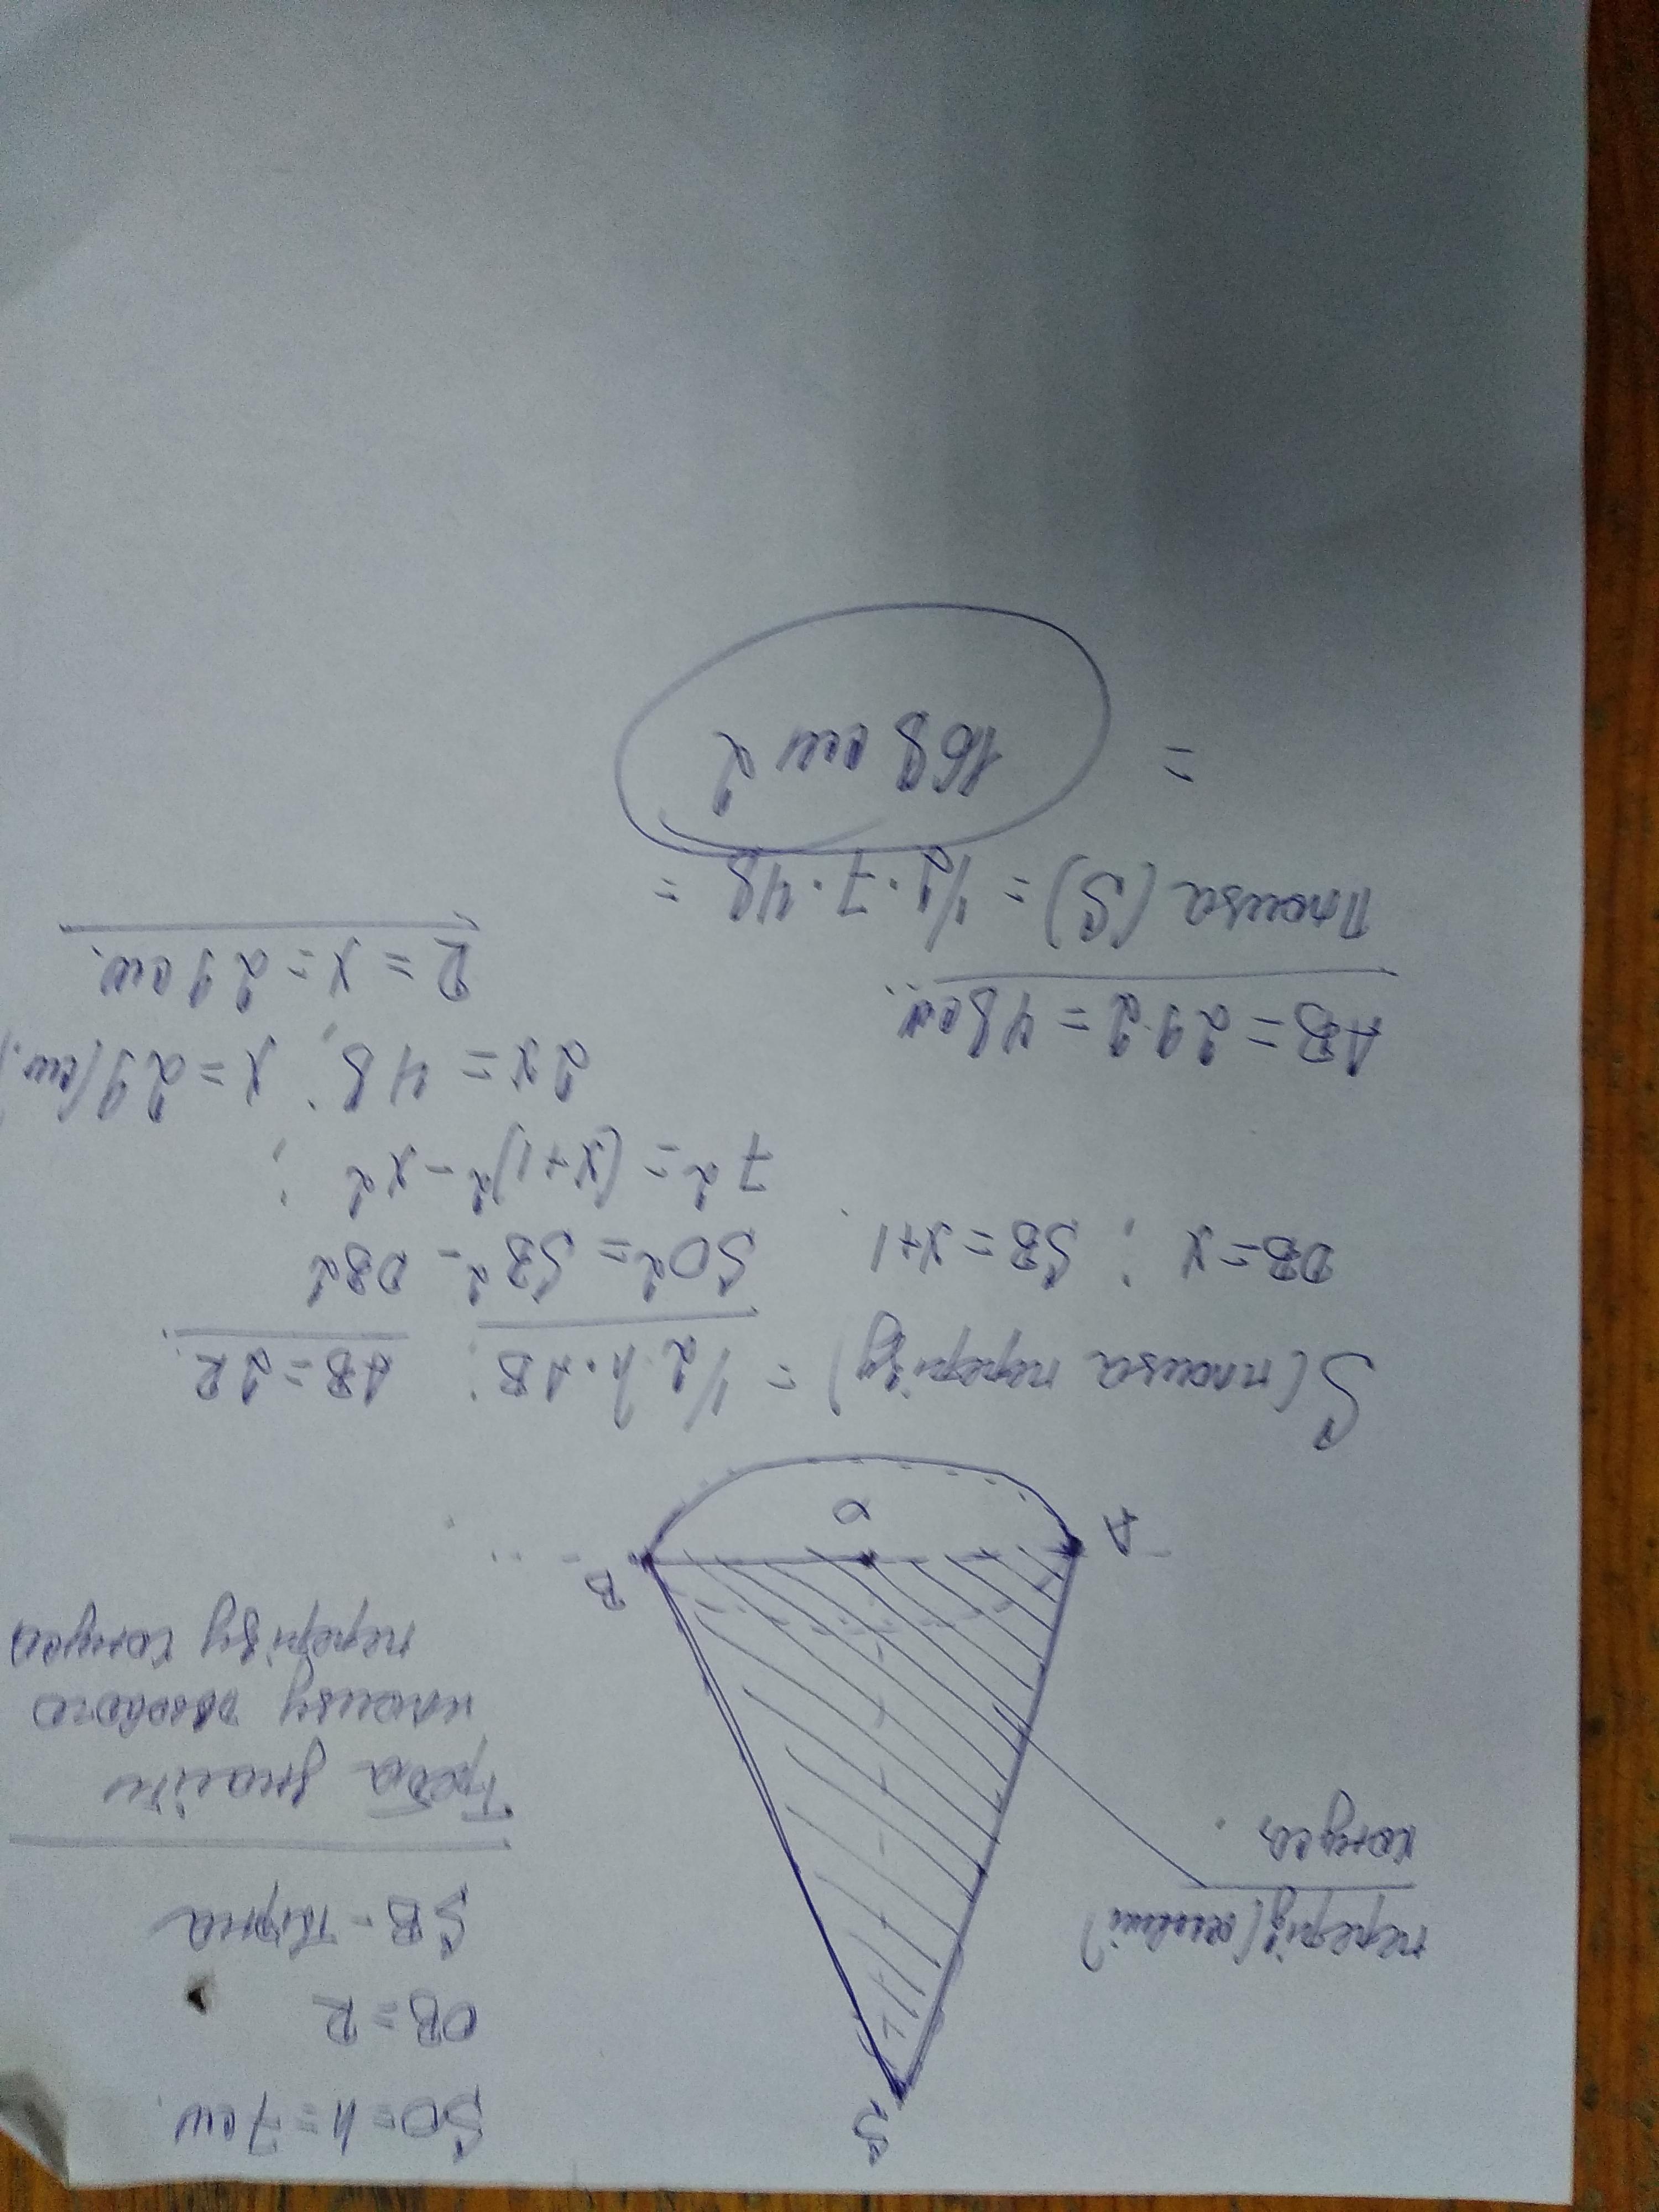 S
SO = h = 7 см.
OB = R
SB - твірна
переріз (осьовий)
конуса.
Треба знайти
площу осьового
перерізу конуса
B
A
O
S (площа перерізу) = 1/2 · h · AB; AB = 2R.
OB = x ; SB = x+1.
SO2 = SB2 - OB2
72 = (x+1)2 - x2 ;
2x = 48; x = 24 (см.)
AB = 24·2 = 48 см.
R = x = 24 см.
Площа (S) = 1/2 · 7 · 48 =
= 168 см 2